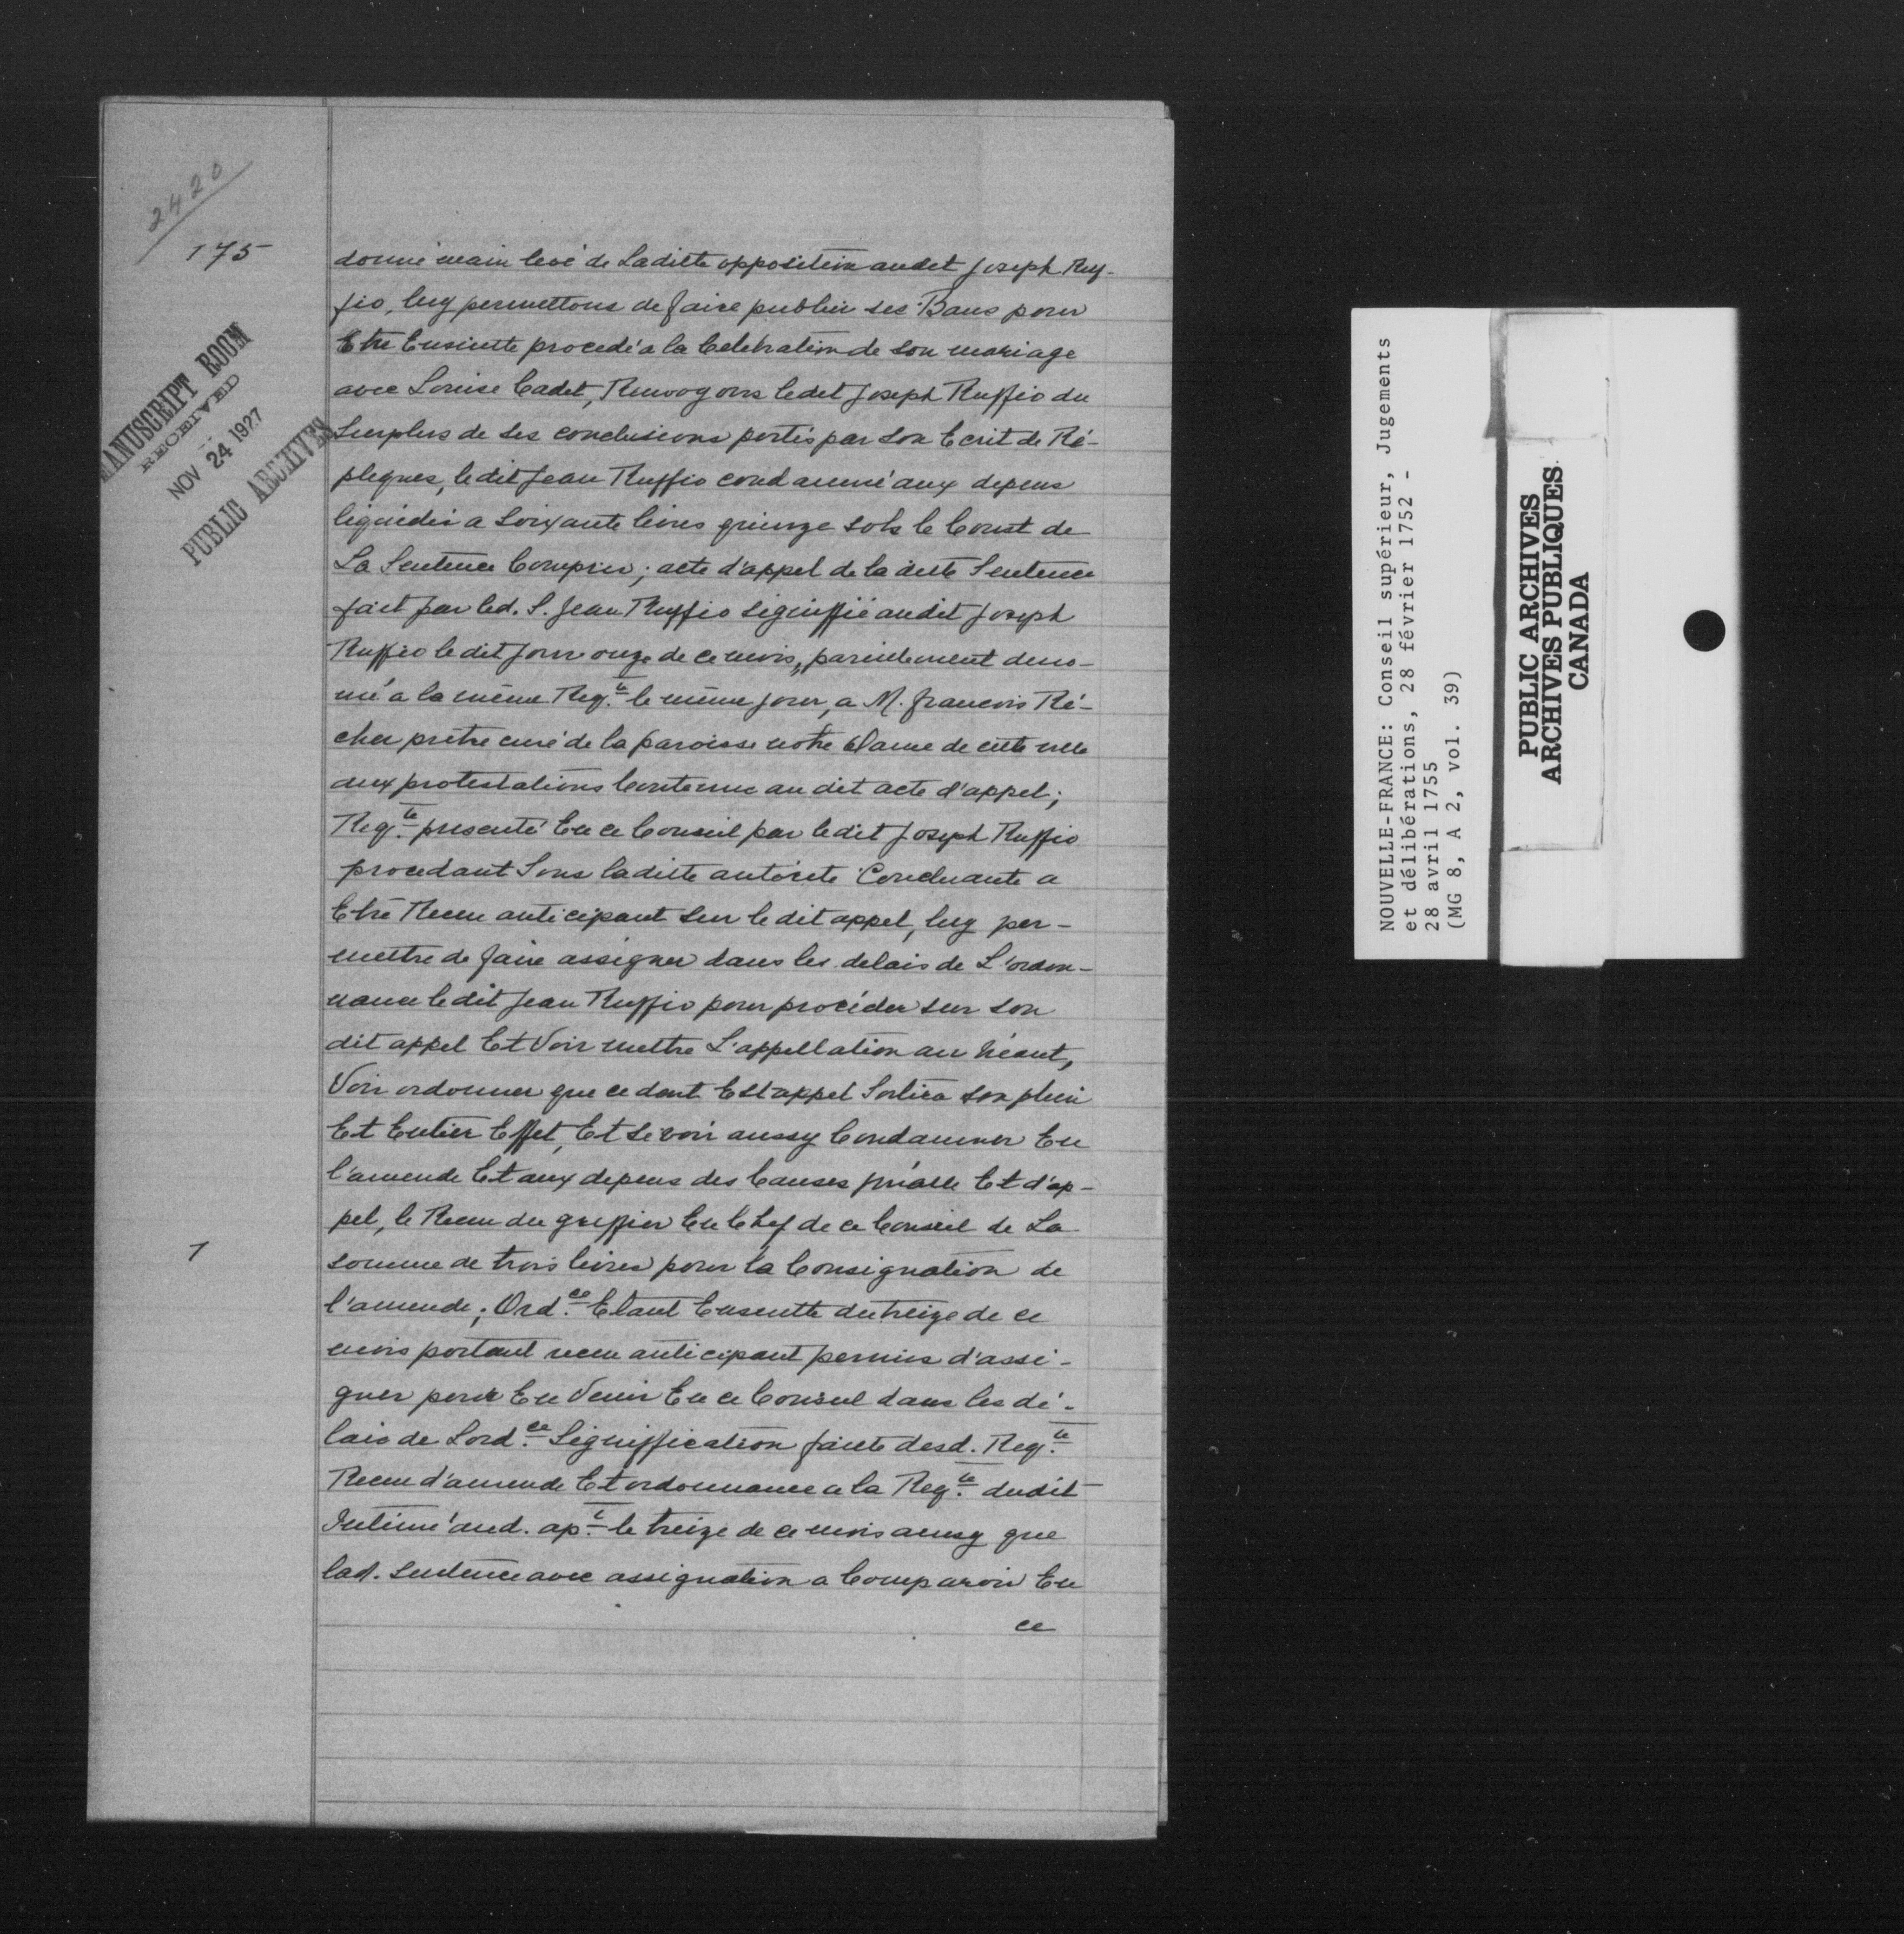 2420
175
MANUSCRIPT ROOM
RECEIVED
NOV 24 1927
PUBLIC ARCHIVES
donné main levé de Laditte opposition audit Joseph Ruf-
fio, luy permettons de faire publier ses Bans pour
Etre Ensuitte procedé a la Celebration de son mariage
avec Louise Cadet, Renvoyons ledit Joseph Ruffio du
Surplus de ses conclusions portés par son Ecrit de Ré-
pliques, ledit Jean Ruffio condamné aux depens
liquidés a Soixante livres quinze sols le Coust de
La Sentence Compris; acte d'appel de la ditte Sentence
fait par led. S. Jean Ruffio signiffié audit Joseph
Ruffio le dit jour onze de ce mois, pareillement deno-
mé a la même Reqte. le même jour, a M. francois Ré-
cher prêtre curé de la paroisse notre Dame de cette ville
aux protestations Contenue au dit acte d'appel;
Reqte. presenté En ce Conseil par ledit Joseph Ruffio
procedant Sous laditte autorité Concluante a
Etre Receu anticipant Sur le dit appel, luy per-
mettre de faire assigner dans les delais de L'ordon-
nance ledit Jean Ruffio pour procéder sur son
dit appel Et Voir mettre L'appellation au néant,
Voir ordonner que ce dont Est appel Sortira son plein
Et Entier Effet, Et se voir aussy Condamner En
l'amende Et aux depens des Causes prialle Et d'ap-
pel, le Receu du greffier En Chef de ce Conseil de La
1
somme de trois livres pour la Consignation de
l'amende; Ordce. Etant Ensuitte du treize de ce
mois portant receu anticipant permis d'assi-
gner pour En Venir En ce Conseil dans les dé-
lais de Lordce. Signiffication faite desd. Reqte.
Receu d'amende Et ordonnance a la Reqte. dudit
Intimé aud. apt. le treize de ce mois aussy que
lad. Sentence avec assignation a Comparoir En
ce
NOUVELLE-FRANCE: Conseil supérieur, Jugements
et délibérations, 28 février 1752 -
28 avril 1755
(MG 8, A 2, vol. 39)
PUBLIC ARCHIVES
ARCHIVES PUBLIQUES
CANADA